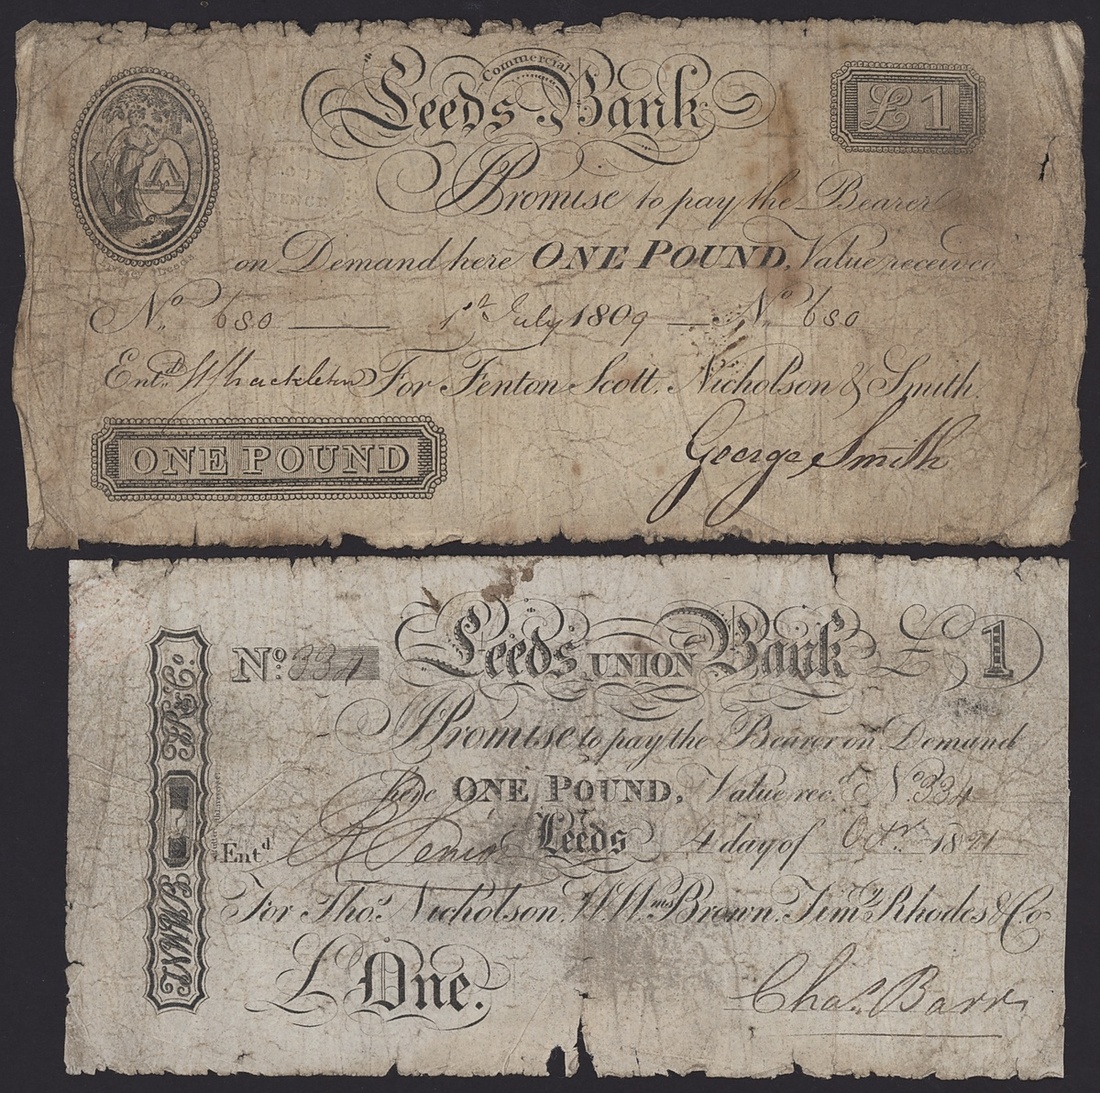 Leeds Commercial Bank
£1
I Promise to pay the Bearer
on Demand here ONE POUND, Value received
No. 680 1st July 1809 No. 680
Entd. Shackleton For Fenton Scott, Nicholson & Smith.
ONE POUND
George Smith
No. 334
Leeds UNION Bank £1
I Promise to pay the Bearer on Demand
here ONE POUND, Value rec.d No. 334
Entd Leeds 4 day of Octr. 18
For Thos. Nicholson, Wms Brown, Timy Rhodes & Co.
£ One.
Chas. Barr